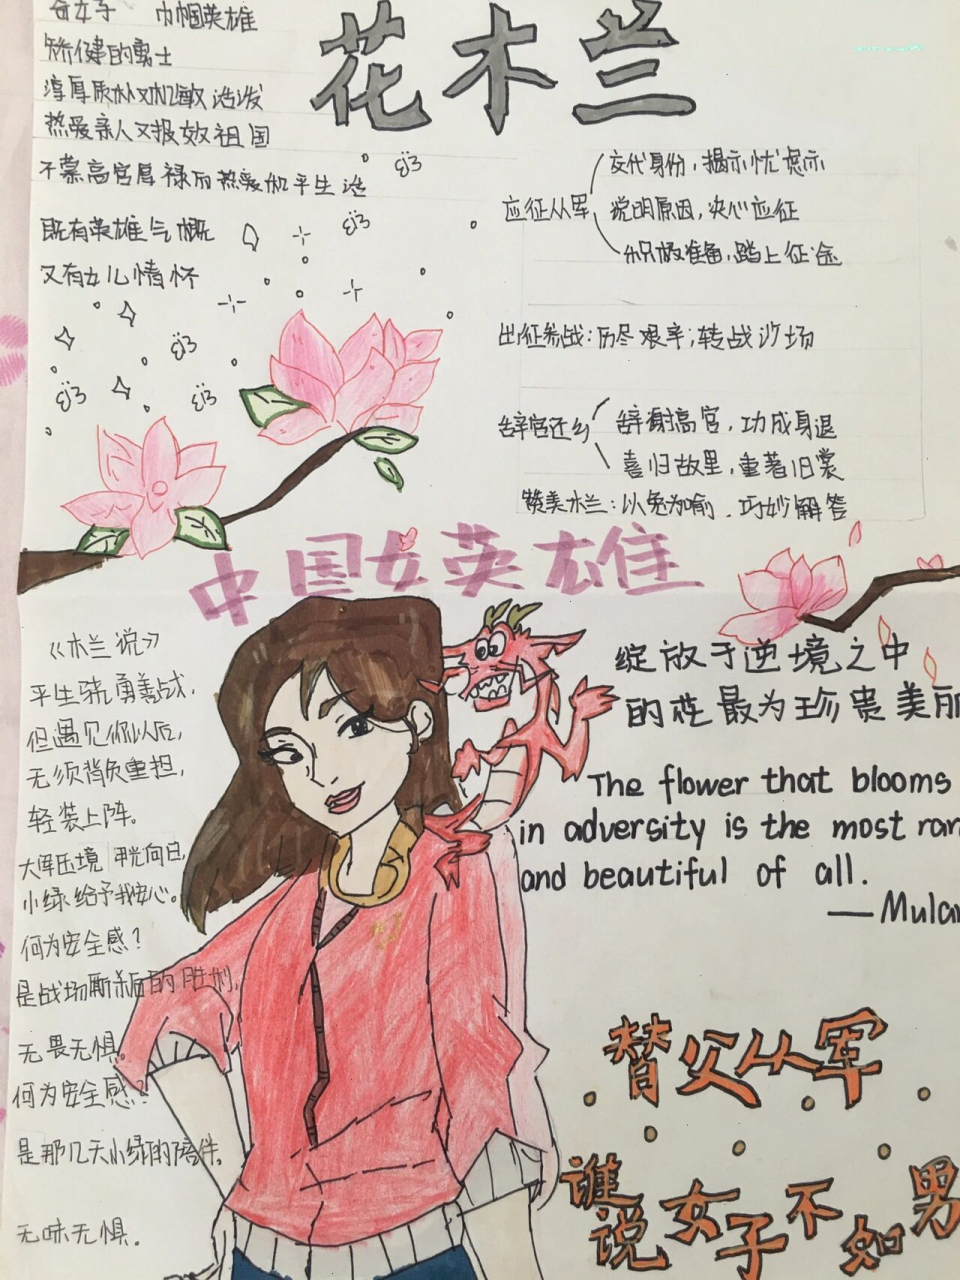 奇女子 巾帼英雄
矫健的勇士
淳厚质朴又机敏活泼
热爱亲人又报效祖国
不慕高官厚禄而热爱和平生活
既有英雄气概
又有女儿情怀
花木兰
应征从军
交代身份，揭示忧虑示
说明原因，决心应征
积极准备，踏上征途
出征参战：历尽艰辛；转战沙场
辞官还乡
辞谢高官，功成身退
喜归故里，重著旧裳
赞美木兰：以兔为喻．巧妙解答
中国女英雄
《木兰说》
平生骁勇善战，
但遇见你以后，
无须背负重担，
轻装上阵。
大军压境 甲光向日，
小绿给予我安心。
何为安全感？
是战场厮杀后的胜利，
无畏无惧。
何为安全感？
是那几天小绿的陪伴。
无味无惧．
绽放于逆境之中
的花最为珍贵美丽
The flower that blooms
in adversity is the most rar
and beautiful of all.
—Mulan
替父从军
谁说女子不如男